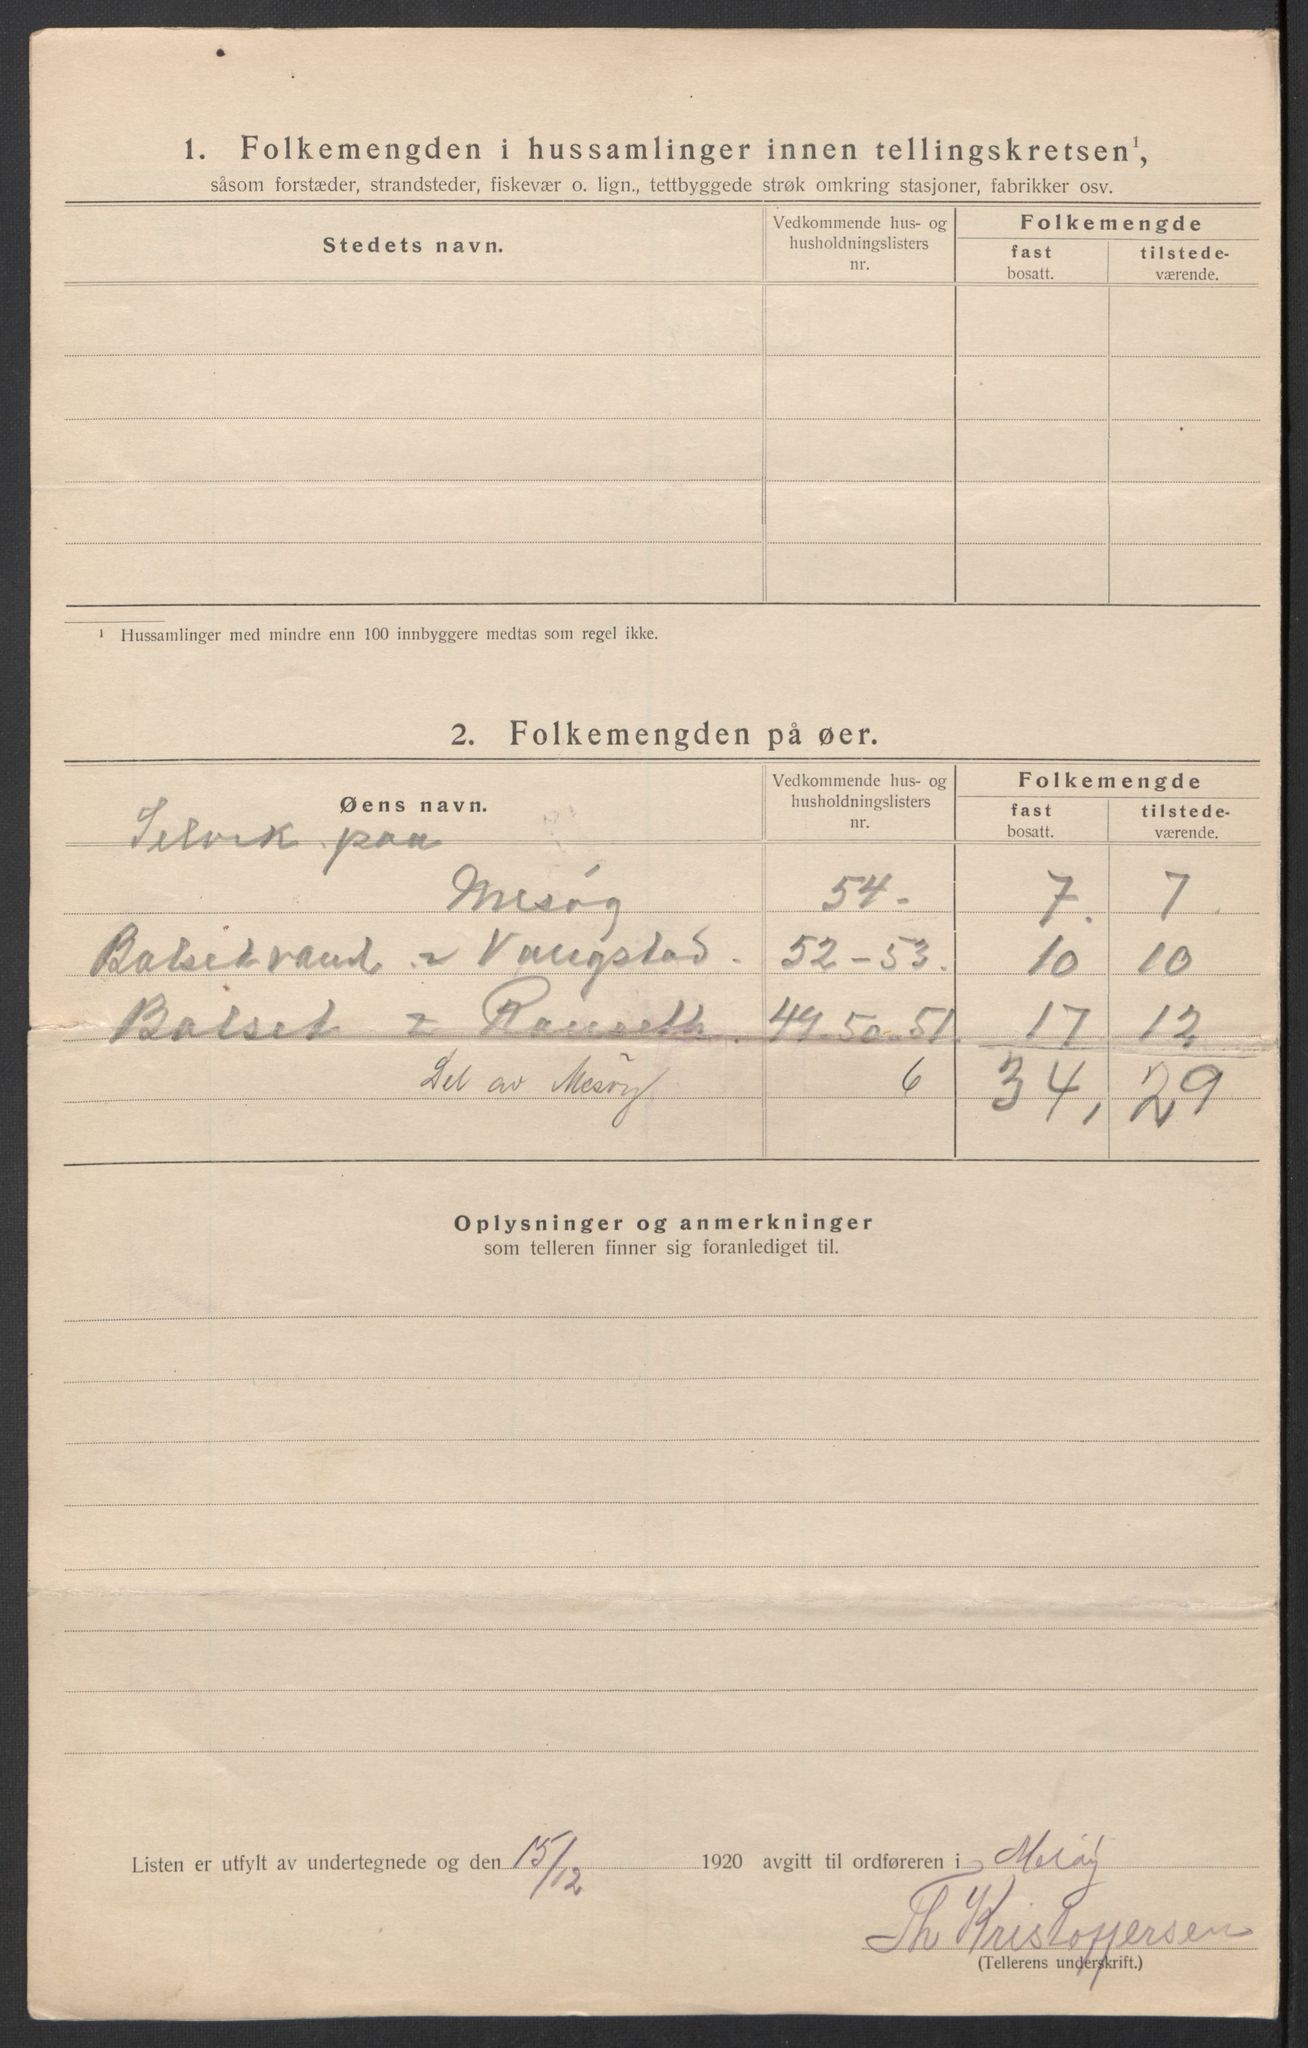 1. Folkemengden i hussamlinger innen tellingskretsen¹,
såsom forstæder, strandsteder, fiskevær o. lign., tettbyggede strøk omkring stasjoner, fabrikker osv.
Stedets navn.
Vedkommende hus- og husholdningslisters nr.
Folkemengde
fast bosatt.
tilstede-værende.
¹ Hussamlinger med mindre enn 100 innbyggere medtas som regel ikke.
2. Folkemengden på øer.
Øens navn.
Vedkommende hus- og husholdningslisters nr.
Folkemengde
fast bosatt.
tilstede-værende.
Selvik paa
Mesøy 54- 7. 7.
Balsetvand Vangstad. 52-53. 10 10
Balset 49-50-51 17 12
Del av Mesøy 6 34, 29
Oplysninger og anmerkninger
som telleren finner sig foranlediget til.
Listen er utfylt av undertegnede og den 15/12 1920 avgitt til ordføreren i Meløy
Th Kristoffersen
(Tellerens underskrift.)